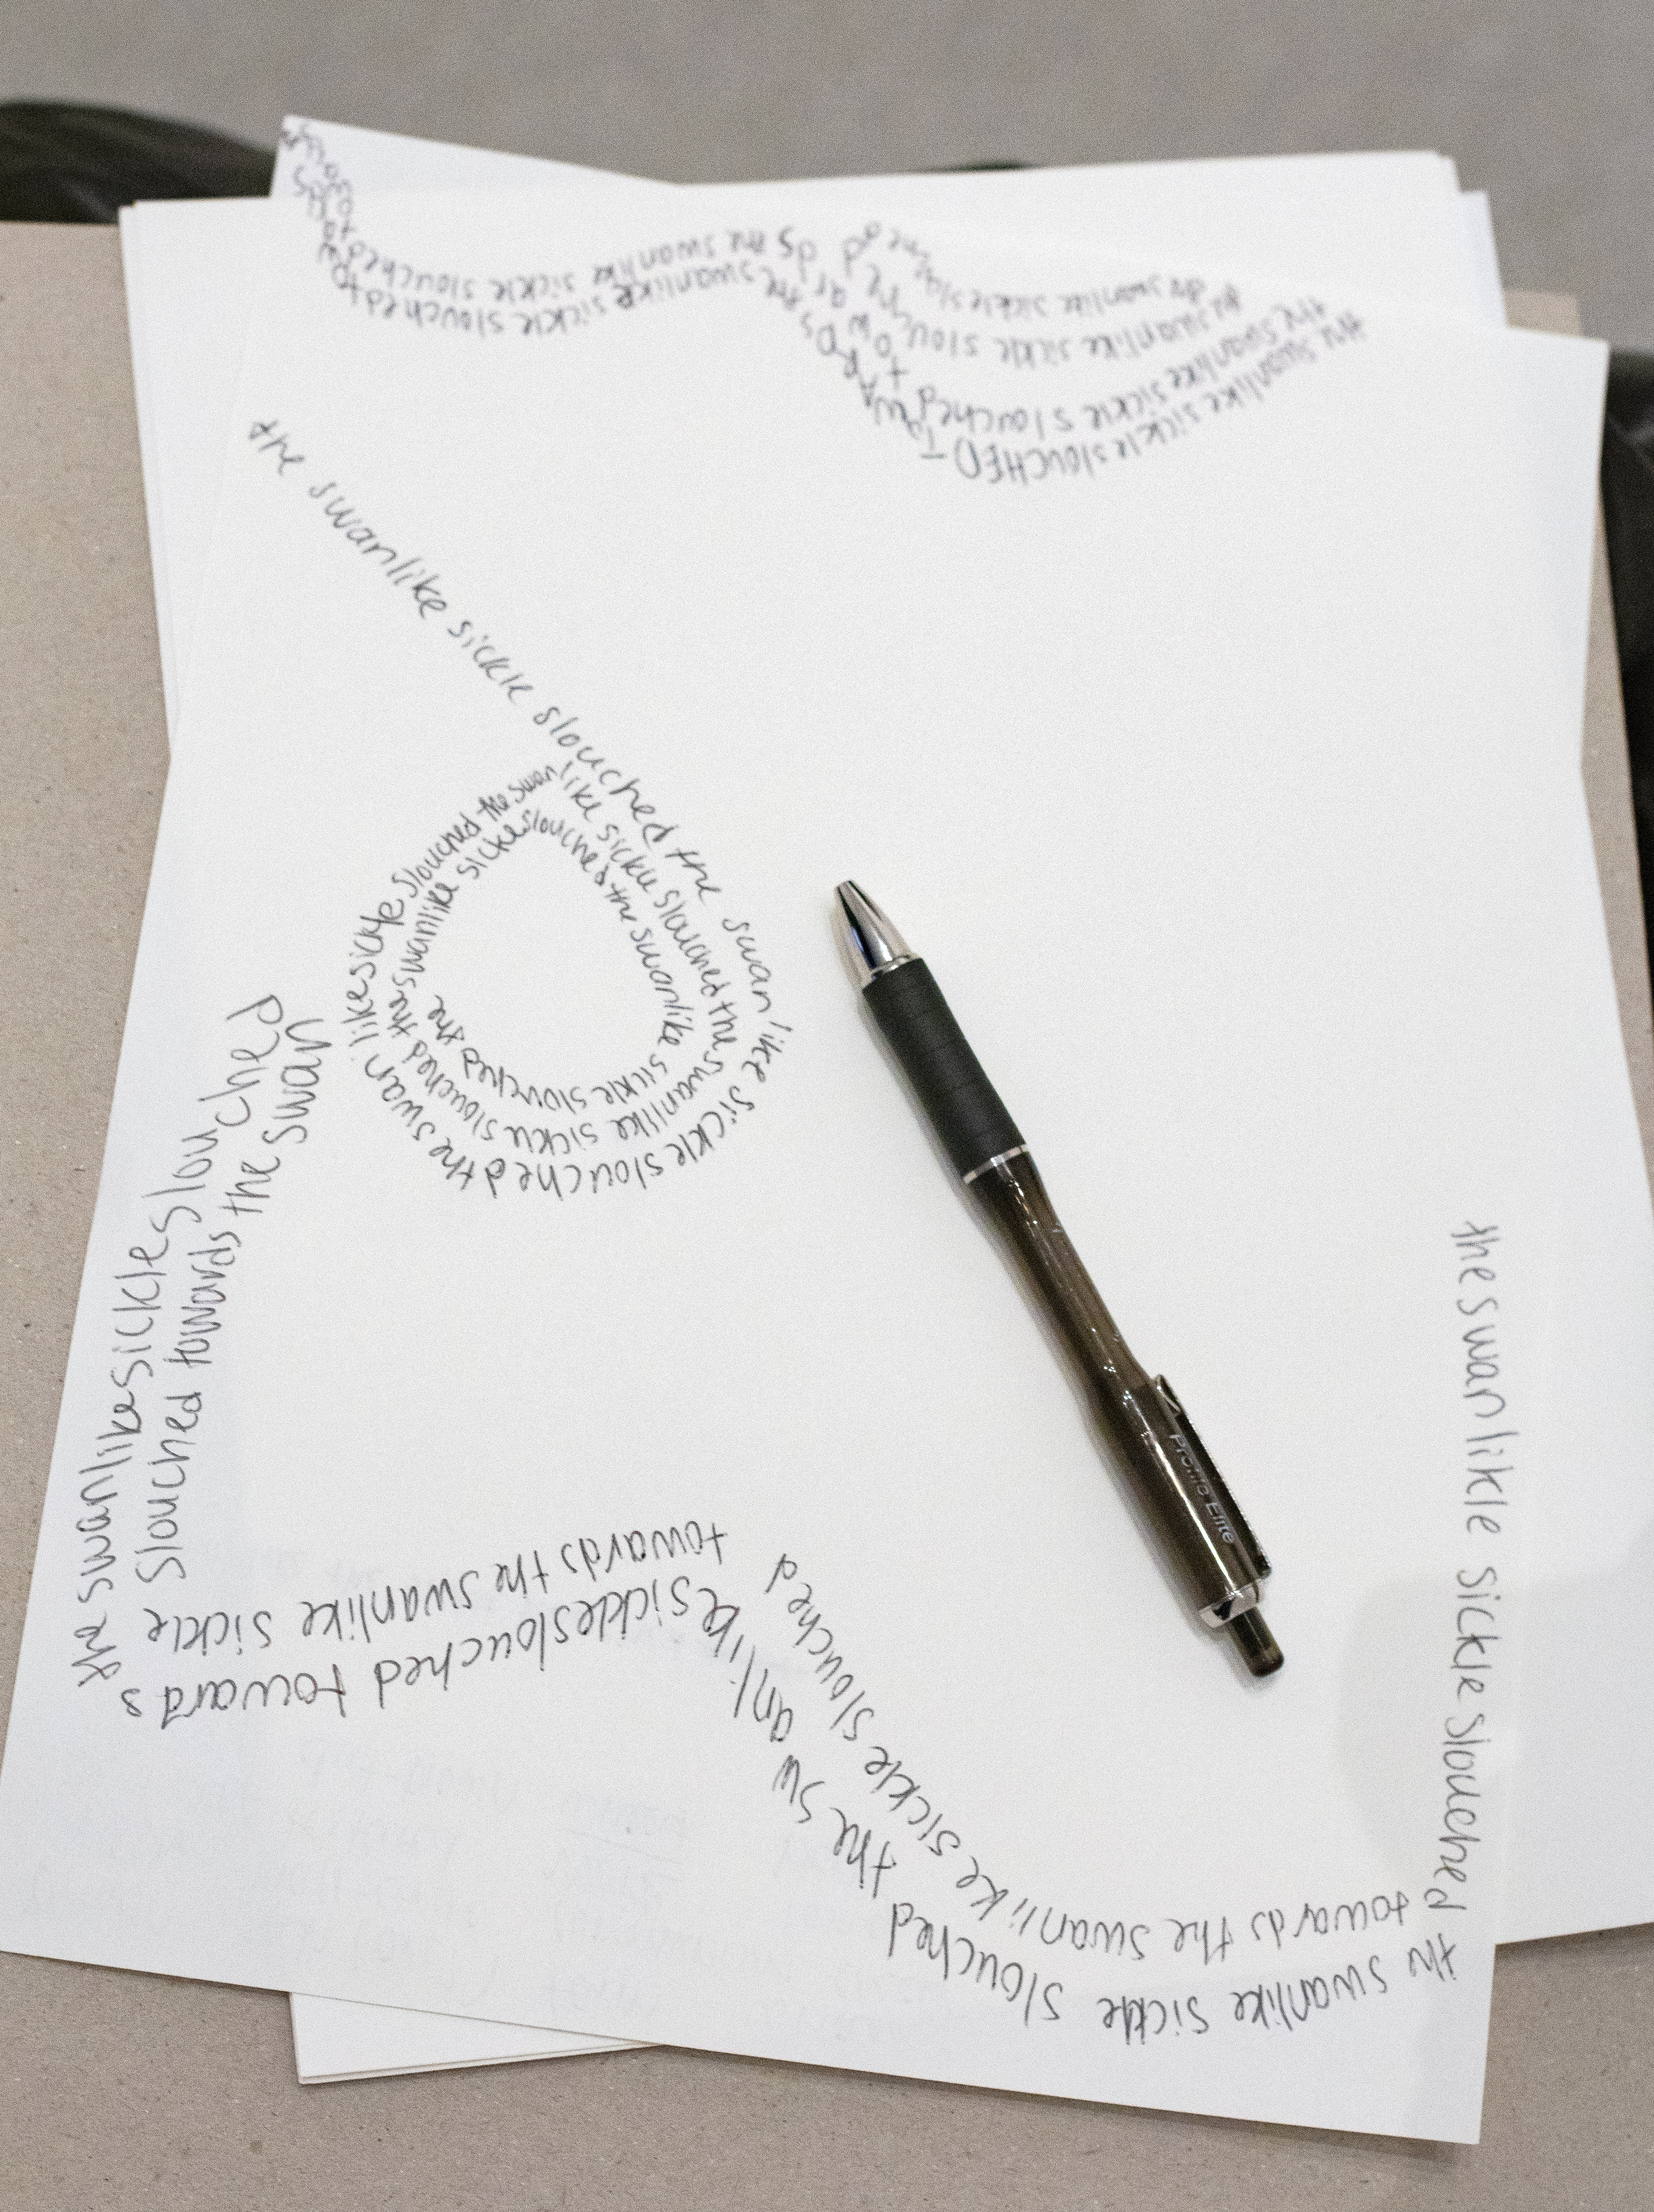 the swanlike sickle slouched towards
the swanlike sickle slouched tow
the swanlike sickle slouched
the swanlike sickle slouched towards
the swanlike sickle slouched
the swanlike sickle sloUCHED TOWARDS
the swanlike sickle slouched the swanlike sickle slouched the swanlike sickle slouched the swanlike sickle slouched the swanlike sickle slouched the swanlike sicke slouched the swanlike sickle slouched the
the swanlike sickle slouched
towards the swanlike sickle
slouched towards the swan
likesickle slouched towards
the swanlike sickle slouched
towards the swanlike sickle slouched
the swanlikle sickle slouched
the swanlike sickle slouched
Profile Elite